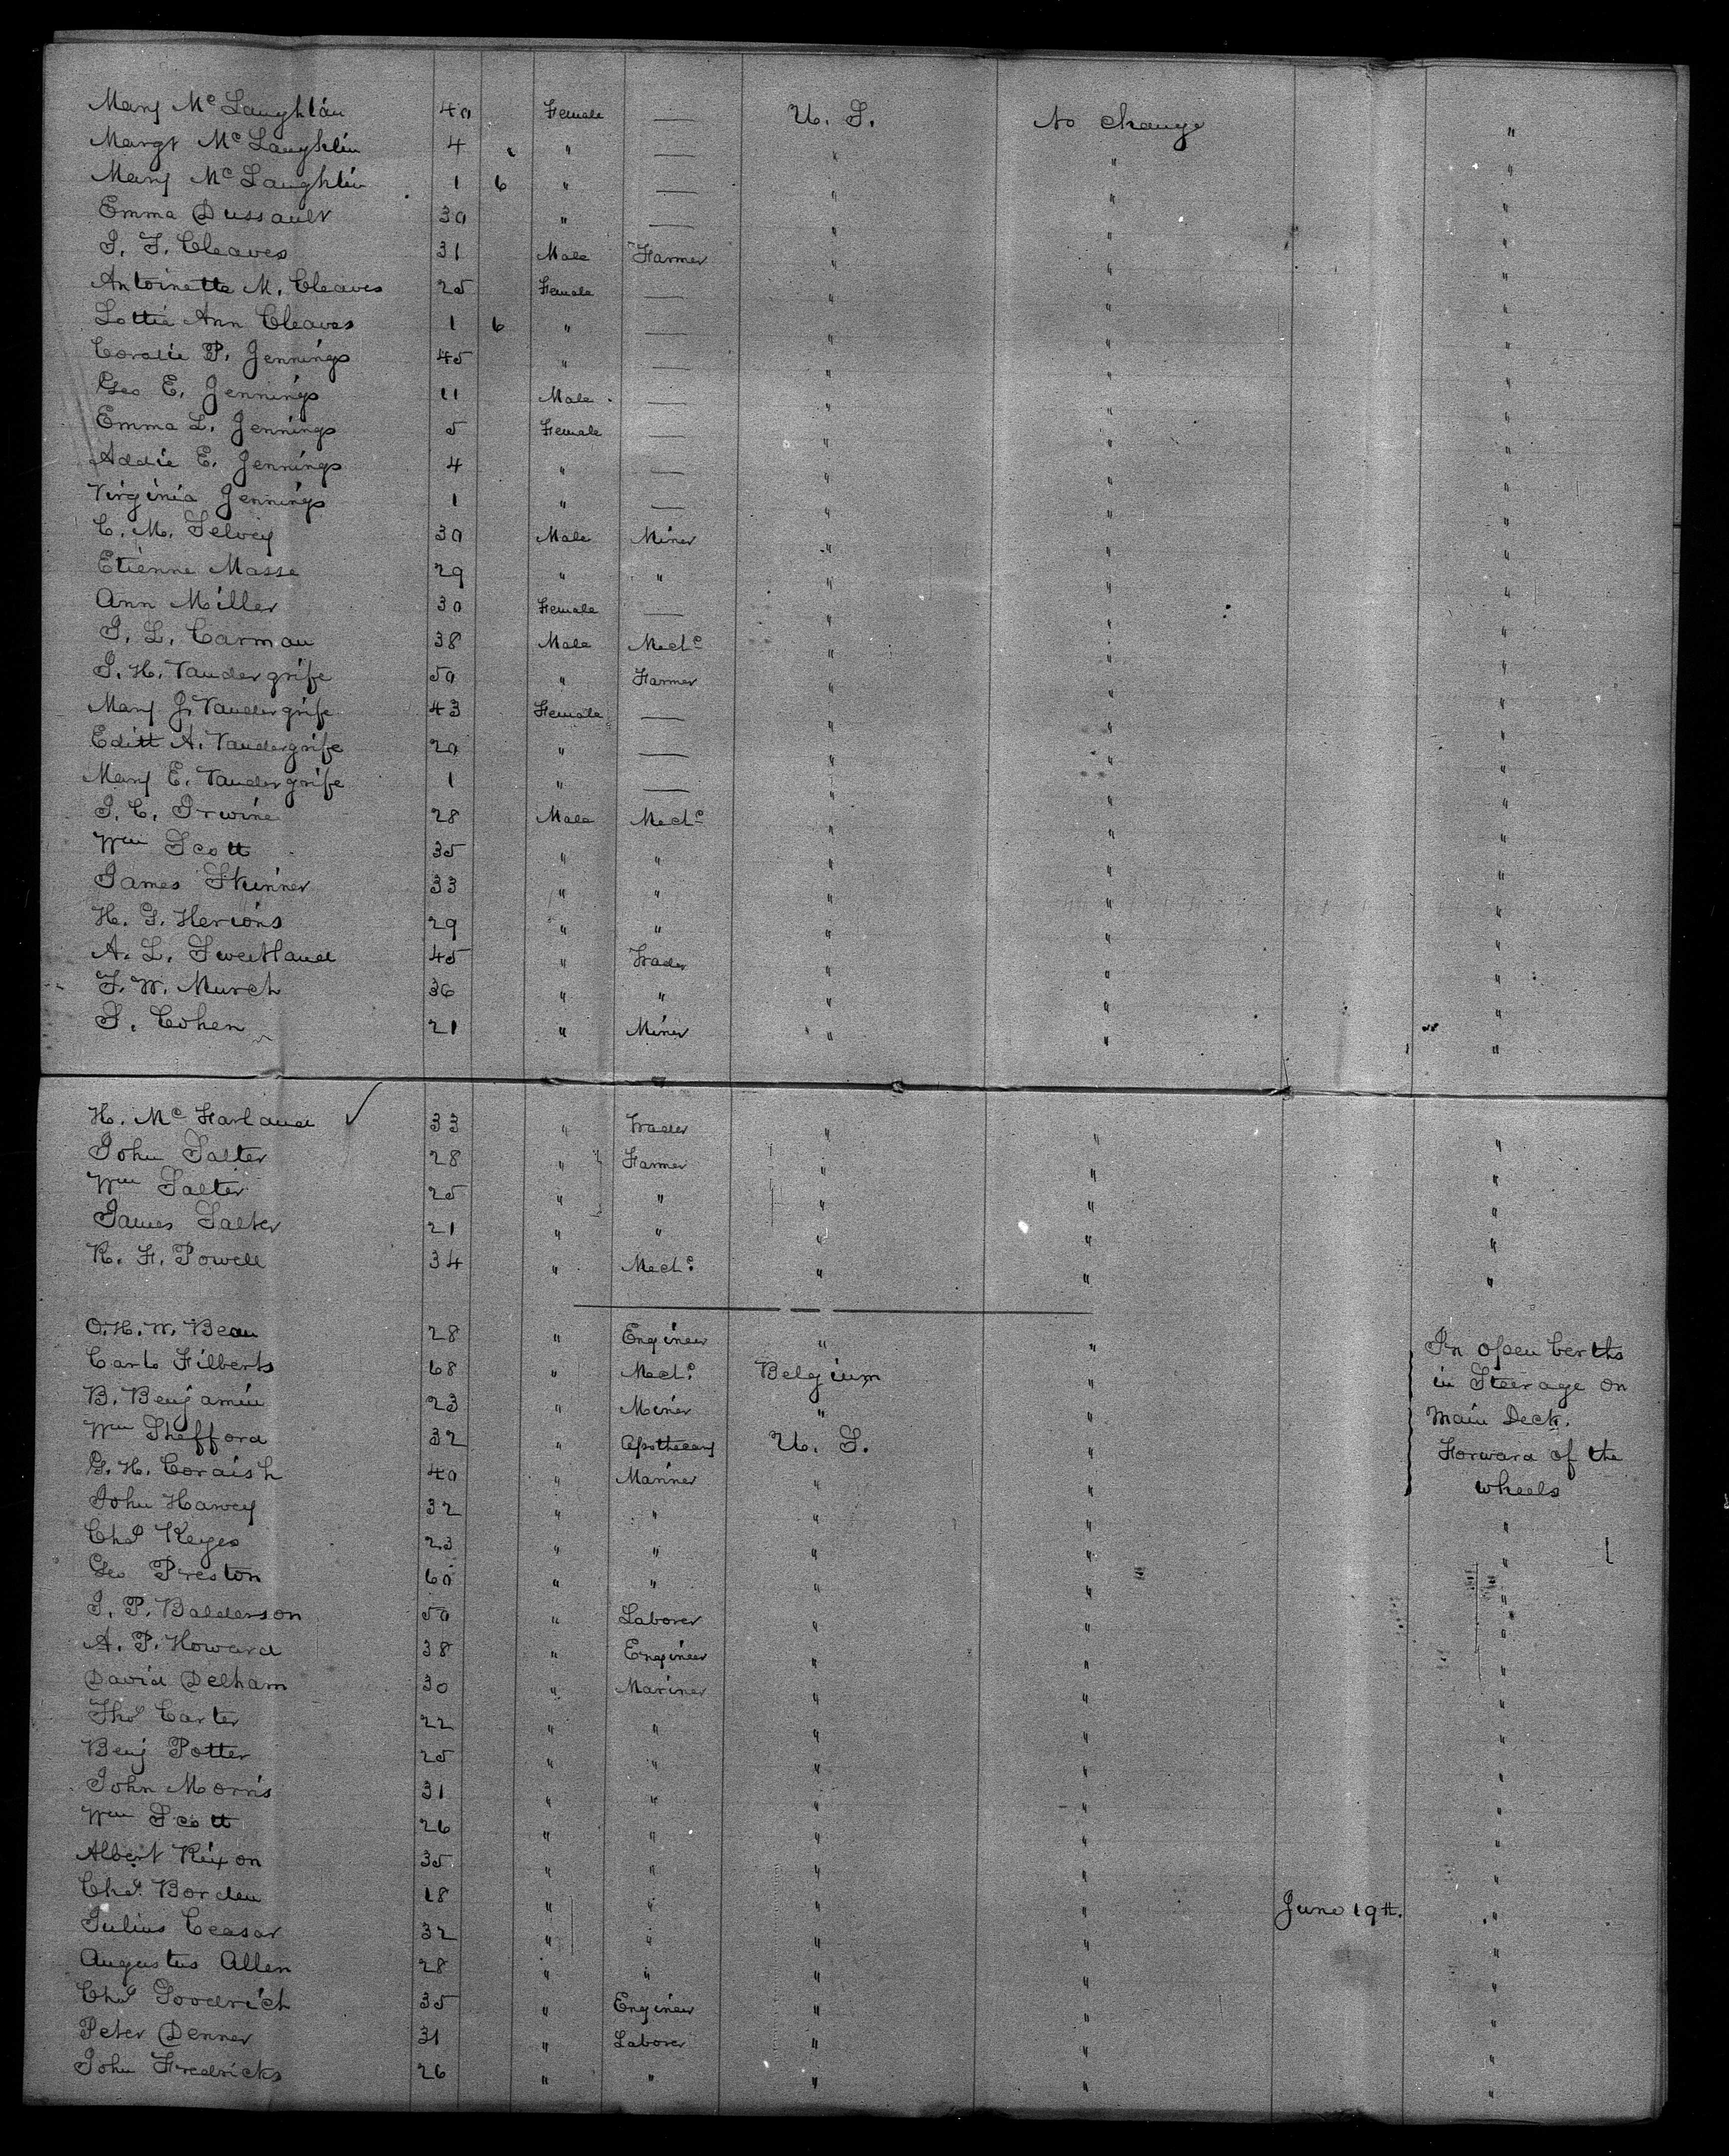 Mary McLaughlan 40 Female — U. S. No change "
Margt McLaughlin 4 " " — " " "
Mary McLaughlin 1 6 " — " " "
Emma Dussault 30 " — " " "
J. F. Cleaves 31 Male Farmer " " "
Antoinette M. Cleaves 25 Female — " " "
Lottie Ann Cleaves 1 6 " — " " "
Coralie P. Jennings 45 " — " " "
Geo E. Jennings 11 Male — " " "
Emma L. Jennings 5 Female — " " "
Addie E. Jennings 4 " — " " "
Virginia Jennings 1 " — " " "
C. M. Selvey 30 Male Miner " " "
Etienne Masse 29 " " " " "
Ann Miller 30 Female — " " "
J. L. Carman 38 Male Mechc " " "
J. H. Vandergrife 50 " Farmer " " "
Mary J. Vandergrife 43 Female — " " "
Editt A. Vandergrife 20 " — " " "
Mary E. Vandergrife 1 " — " " "
J. C. Irwine 28 Male Mechc " " "
Wm Scott 35 " " " " "
James Skinner 33 " " " " "
H. G. Herions 29 " " " " "
A. L. Sweetland 45 " Trader " " "
F. W. Murch 36 " " " " "
S. Cohen 21 " Miner " " "
H. McFarland ✓ 33 " Trader " " "
John Salter 28 " Farmer " " "
Wm Salter 25 " " " " "
James Salter 21 " " " " "
R. F. Powell 34 " Mechc " " "
O. H. W. Beau 28 " Engineer " " In open berths
Carlo Filberts 68 " Mechc Belgium " in Steerage on
B. Benjamin 23 " Miner " " Main Deck.
Wm Shefford 32 " Apothecary U. S. " Forward of the
G. H. Coraish 40 " Mariner " " wheels
John Harvey 32 " " " " "
Chs Keyes 23 " " " " "
Geo Preston 60 " " " " "
J. P. Balderson 50 " Laborer " " "
A. P. Howard 38 " Engineer " " "
David Delham 30 " Mariner " " "
Thos Carter 22 " " " " "
Benj Potter 25 " " " " "
John Morris 31 " " " " "
Wm Scott 26 " " " " "
Albert Rixon 35 " " " " "
Chs. Borden 18 " " " " June 19th. "
Julius Ceasar 32 " " " " "
Augustus Allen 28 " " " " "
Chs Goodrich 35 " Engineer " " "
Peter Denner 31 " Laborer " " "
John Fredricks 26 " " " " "